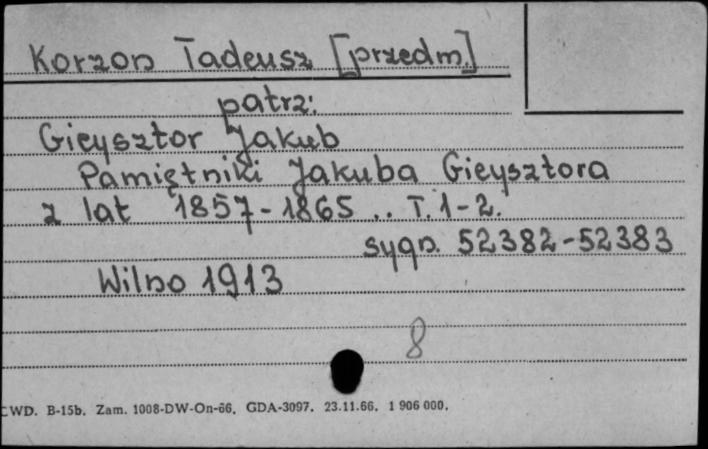 Korzon Tadeusz [przedm.]
patrz:
Gieysztor Jakub
Pamiętniki Jakuba Gieysztora
z lat 1857-1865 .. T. 1-2.
sygn. 52382-52383
Wilno 1913
8
CWD. B-15b. Zam. 1008-DW-On-66. GDA-3097. 23.11.66. 1 906 000.